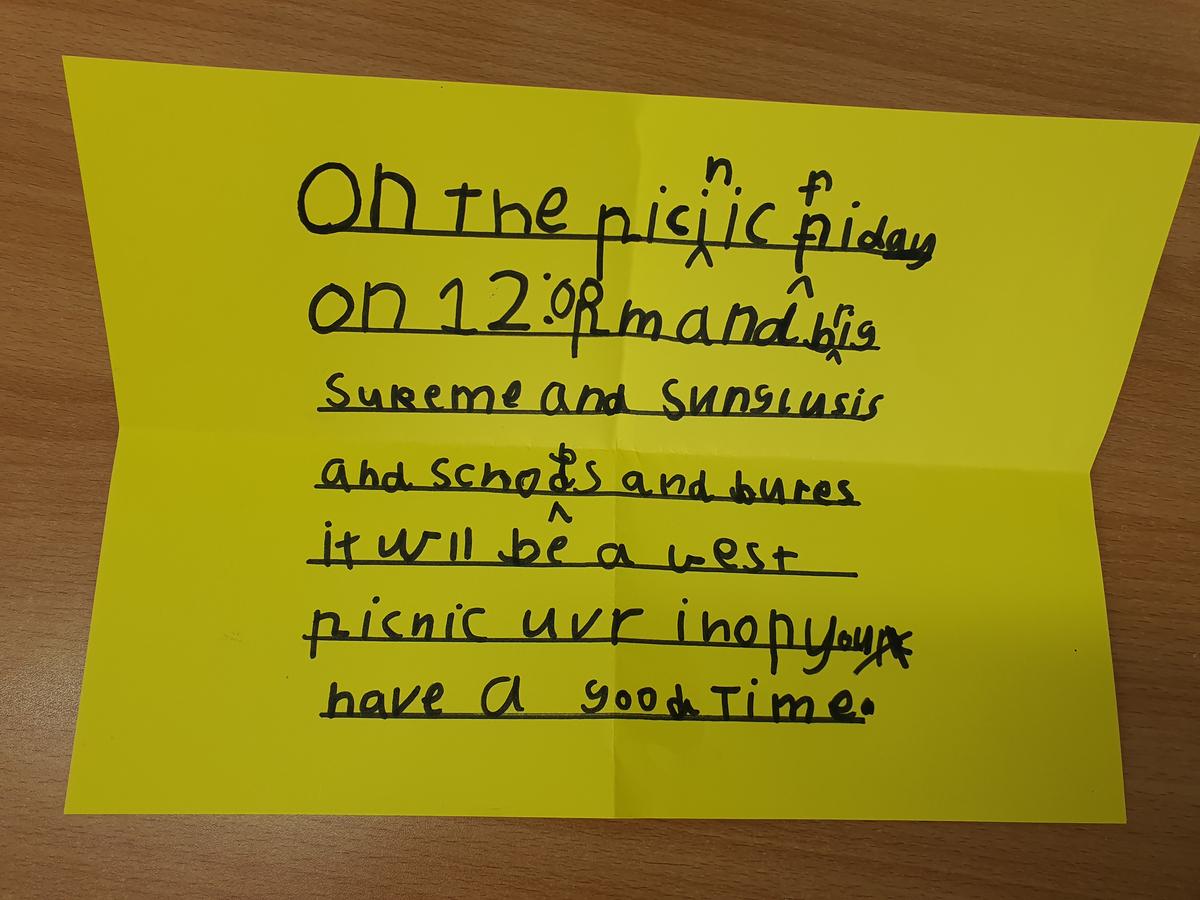 On the picnic friday
on 12:0pm and brig
sukeme and sunglusis
and schots and bures
it will be a vest
picnic uvr i hop you
have a good Time.